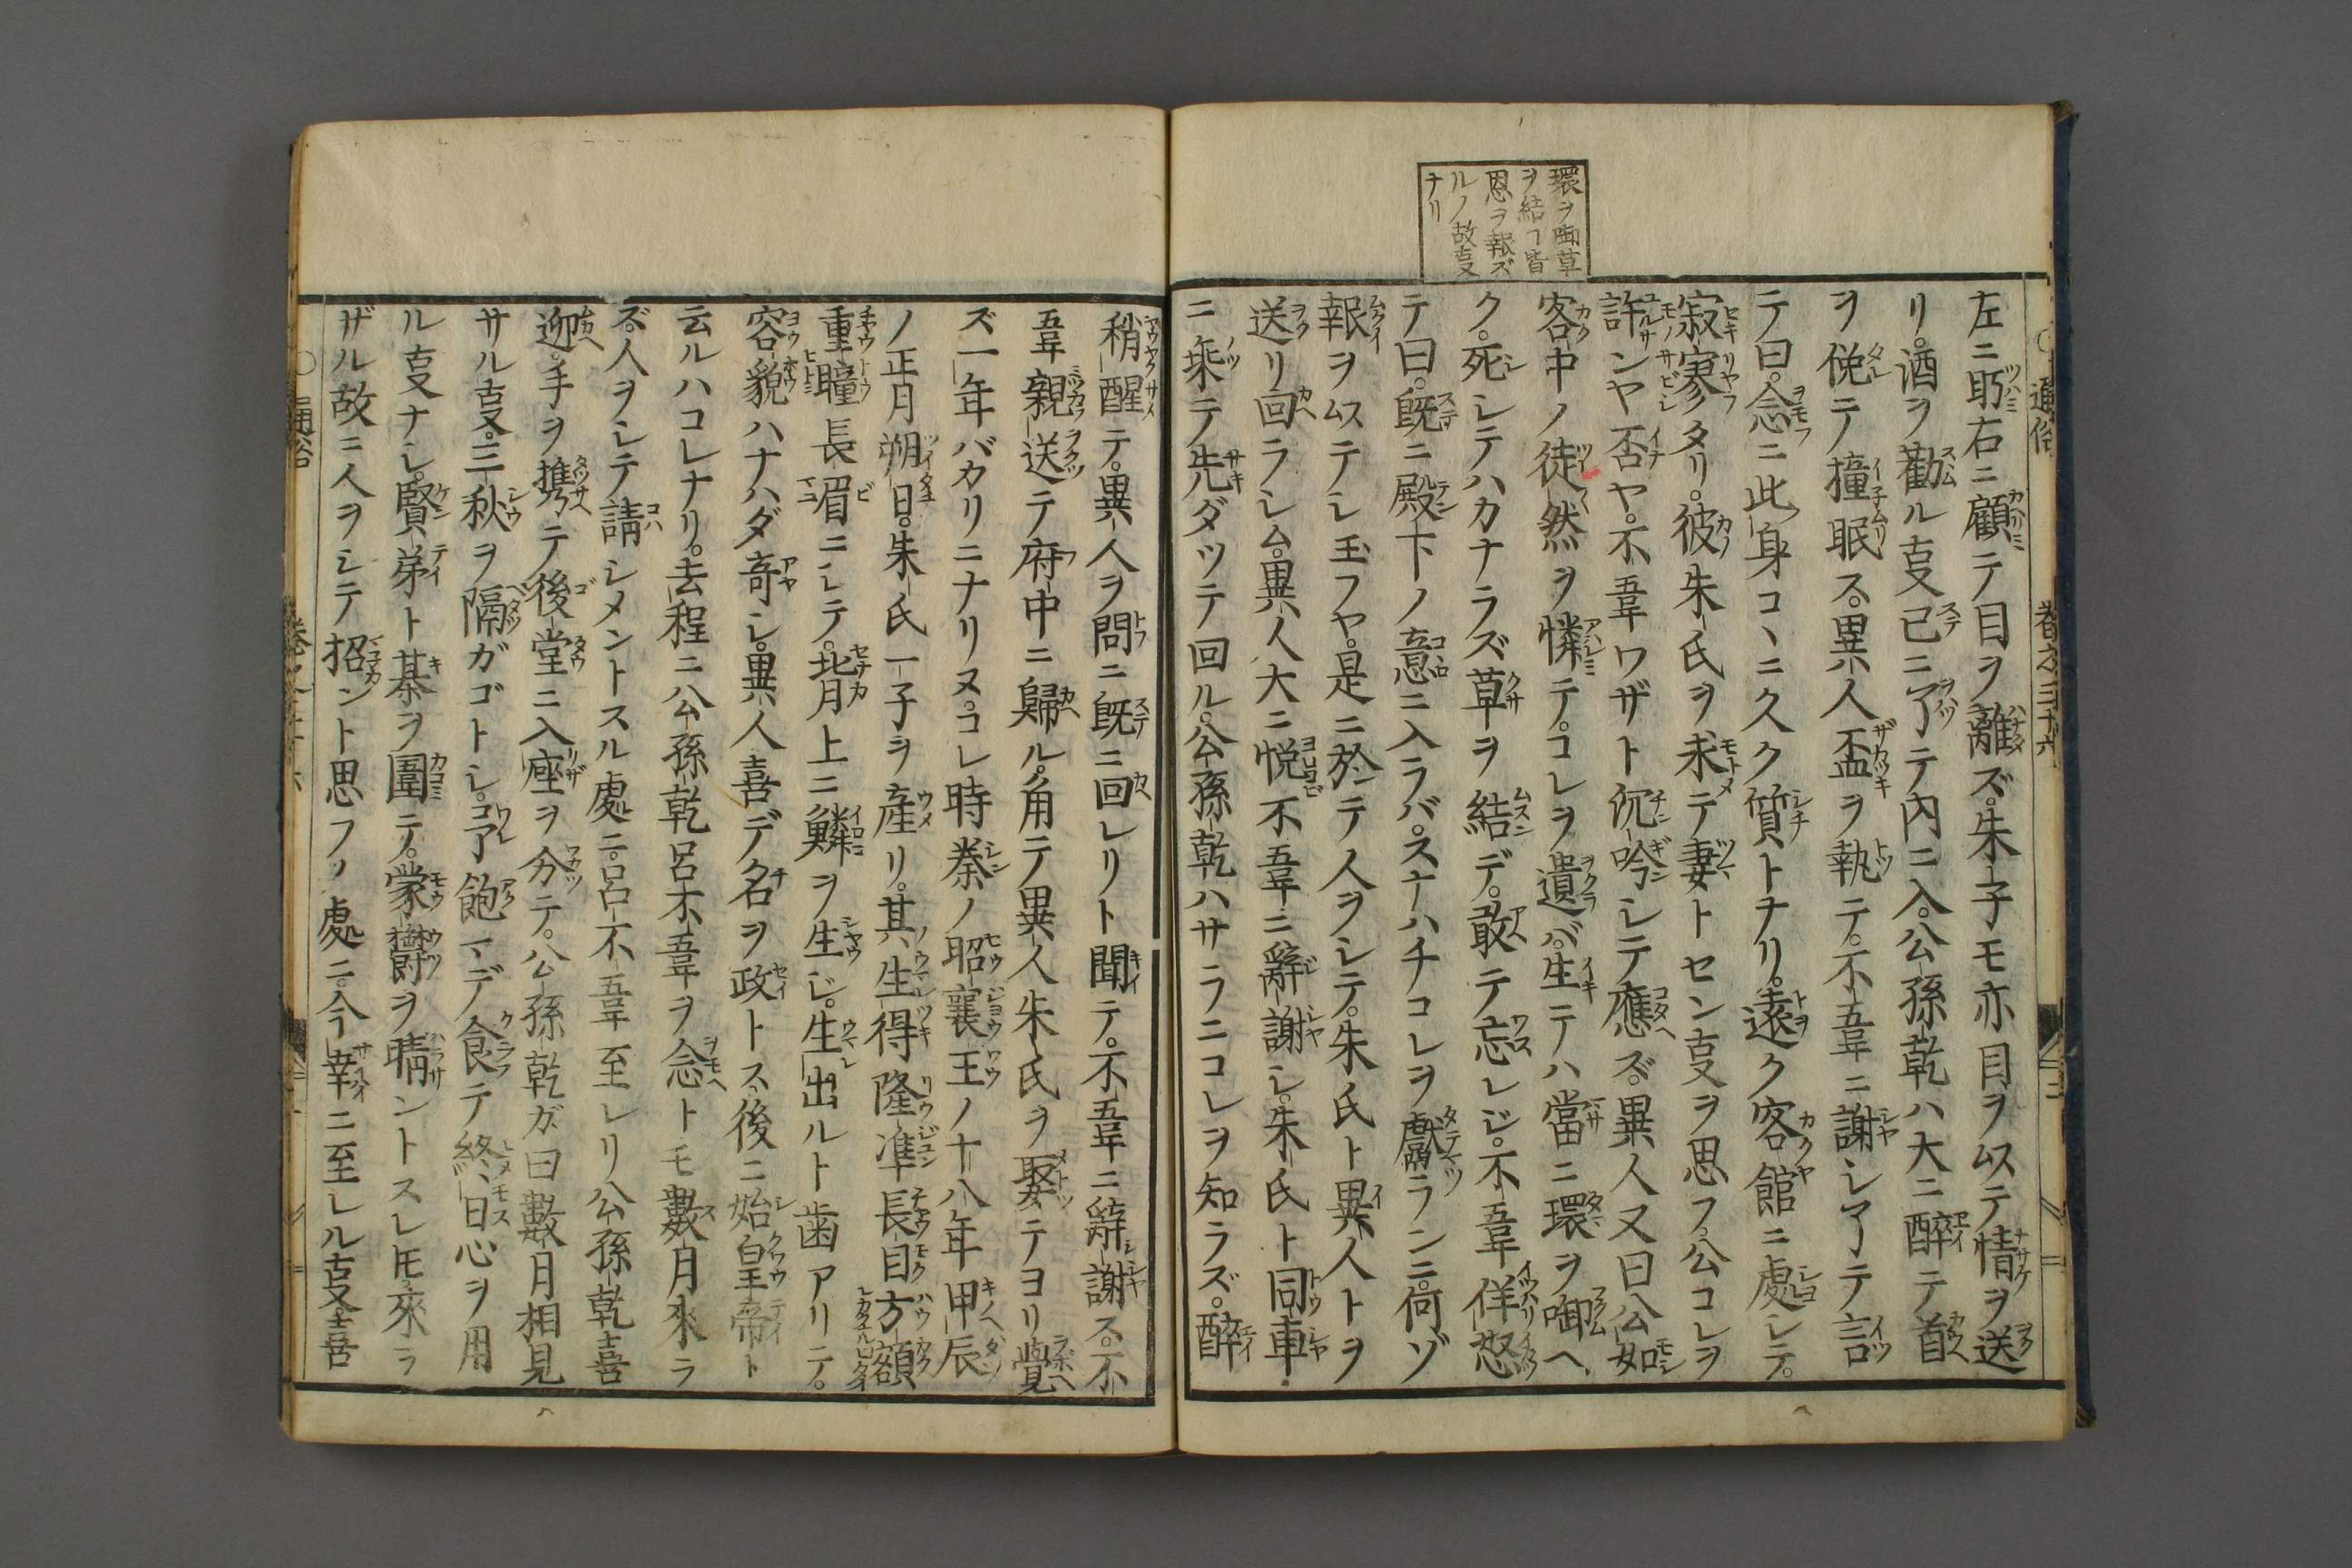 環ヲ啣草
ヲ結フ皆
恩ヲ報ズ
ルノ故叓
ナリ
左ニ眄右ニ顧テ目ヲ離ズ。朱子モ亦目ヲ以テ情ヲ送
リ。酒ヲ勸ル叓已ニ了テ内ニ入。公孫乾ハ大ニ醉テ首
ヲ俛テ撞眠ス。異人盃ヲ執テ。不韋ニ謝シ了テ言
テ曰。念ニ此身コヽニ久ク質トナリ。遠ク客館ニ處シテ。
寂寥タリ。彼朱氏ヲ求テ妻トセン叓ヲ思フ。公コレヲ
許ンヤ否ヤ。不韋ワザト沉吟シテ應ズ。異人又曰公如
客中ノ徒然ヲ憐テ。コレヲ遺バ。生テハ當ニ環ヲ啣ヘ
ク。死シテハカナラズ草ヲ結デ。敢テ忘レジ。不韋佯怒
テ曰。既ニ殿下ノ意ニ入ラバ。スナハチコレヲ獻ランニ。何ゾ
報ヲ以テシ玉フヤ。是ニ於テ人ヲシテ。朱氏ト異人トヲ
送リ回ラシム。異人大ニ悦不韋ニ辭謝シ。朱氏ト同車
ニ乘テ先ダツテ回ル。公孫乾ハサラニコレヲ知ラズ。醉
稍醒テ。異人ヲ問ニ既ニ回レリト聞テ。不韋ニ辭謝ス。不
韋親送テ府中ニ歸ル。角テ異人朱氏ヲ娶テヨリ覺
ズ一年バカリニナリヌ。コレ時秦ノ昭襄王ノ十八年甲辰
ノ正月朔日。朱氏一子ヲ産リ。其生得隆準長目方額
重瞳長眉ニシテ。背上ニ鱗ヲ生ジ。生出ルト歯アリテ。
容貌ハナハダ奇シ。異人喜デ名ヲ政トス。後ニ始皇帝ト
云ルハコレナリ。去程ニ公孫乾呂不韋ヲ念トモ數月來ラ
ズ。人ヲシテ請シメントスル處ニ。呂不韋至レリ公孫乾喜
迎。手ヲ携テ後堂ニ入座ヲ分テ。公孫乾ガ曰數月相見
サル叓。三秋ヲ隔ガゴトシ。了飽マデ食テ終日心ヲ用
ル叓ナシ。賢弟ト棊ヲ圍テ。蒙欝ヲ晴ントスレ𪜈來ラ
ザル故ニ人ヲシテ招ント思フノ處ニ。今幸ニ至レル叓喜